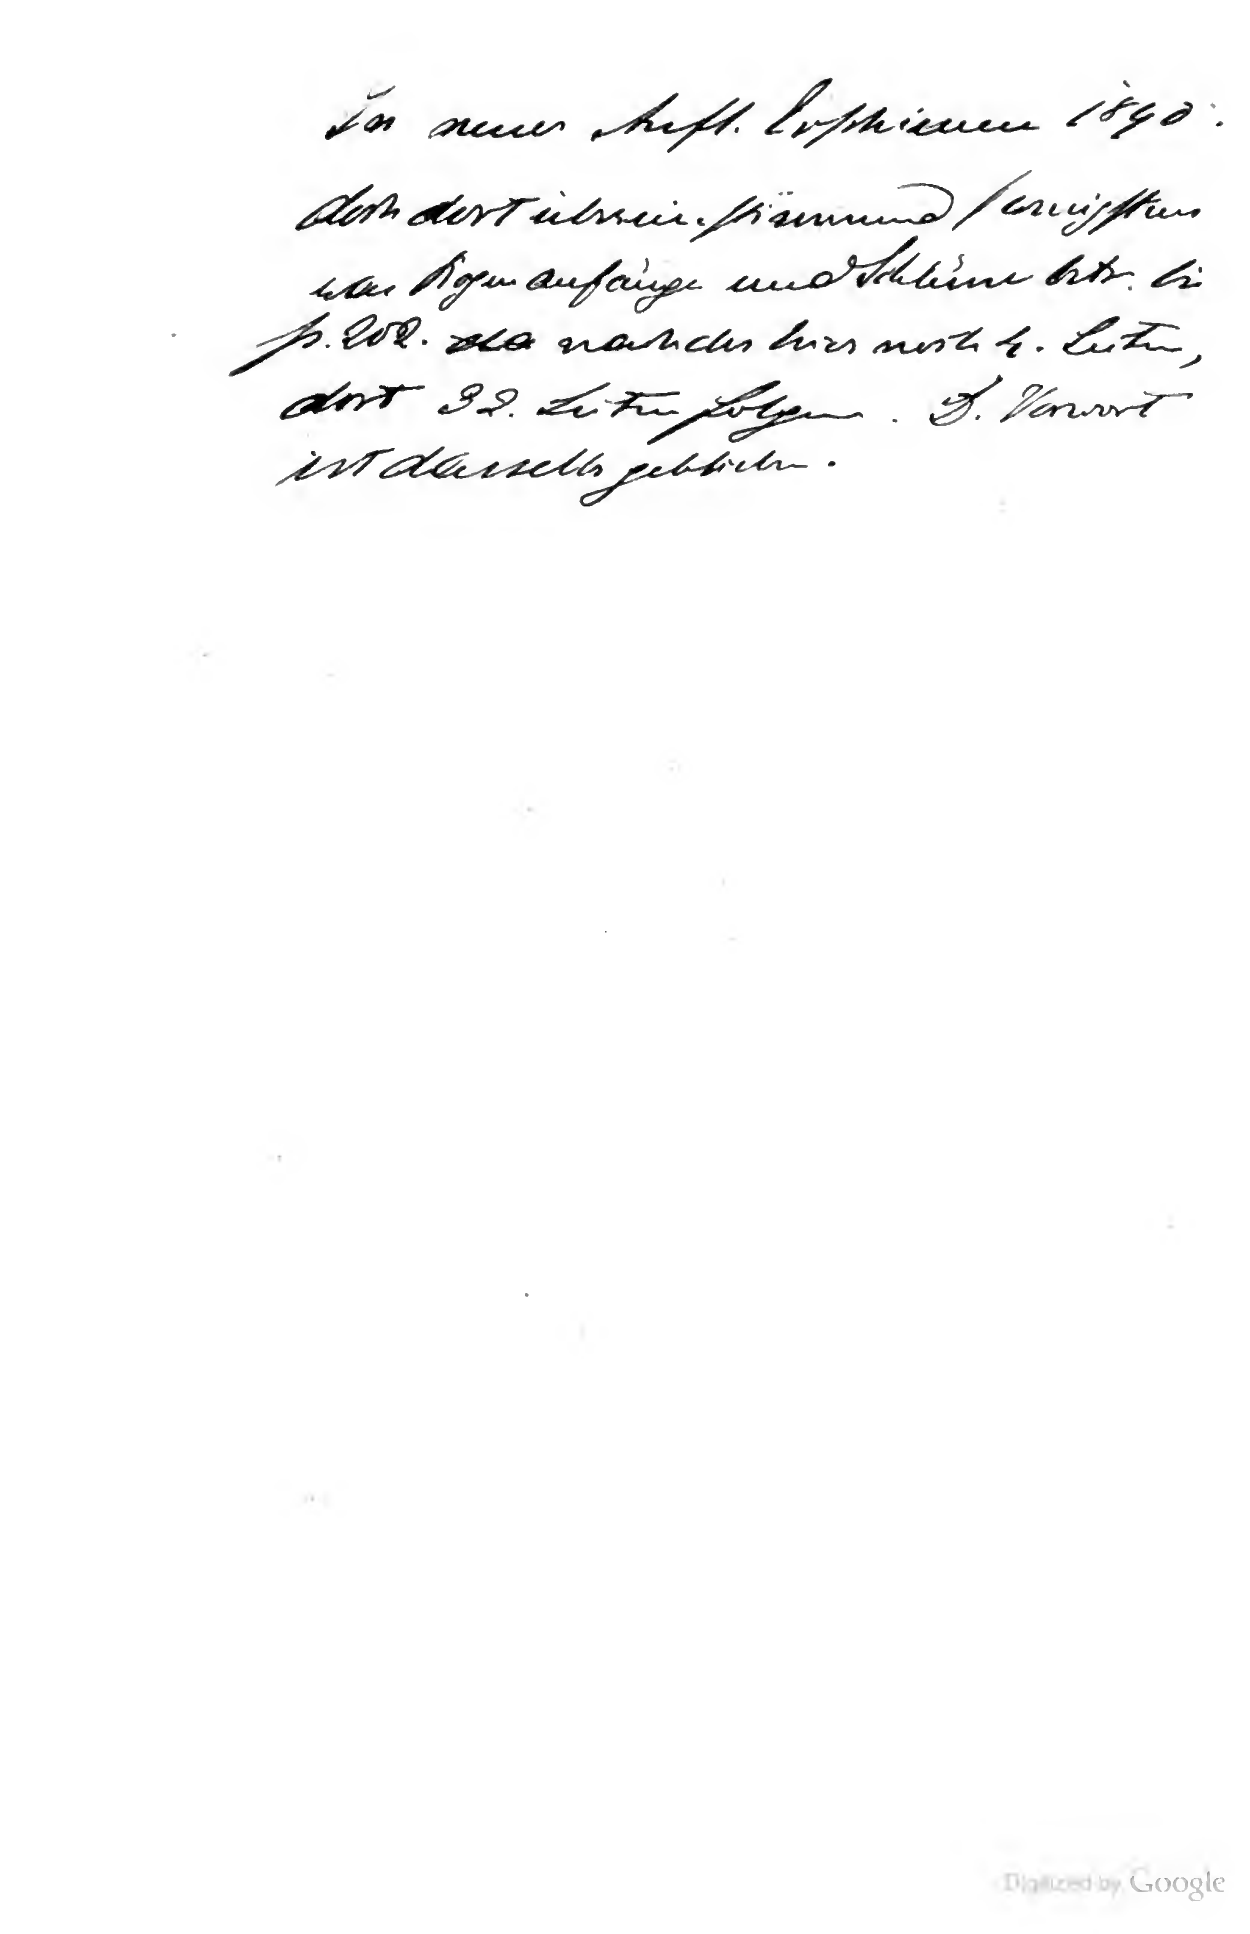 In neuer Aufl. erschienen 1840.
doch dort übereinstimmend / wenigstens
was Bogenanfänge und Schlüsse betr. bis
p. 202. nachdem hier noch 4. Seiten,
dort 32. Seiten folgen. D. Vorwort
ist dasselbe geblieben.
Digitized by Google